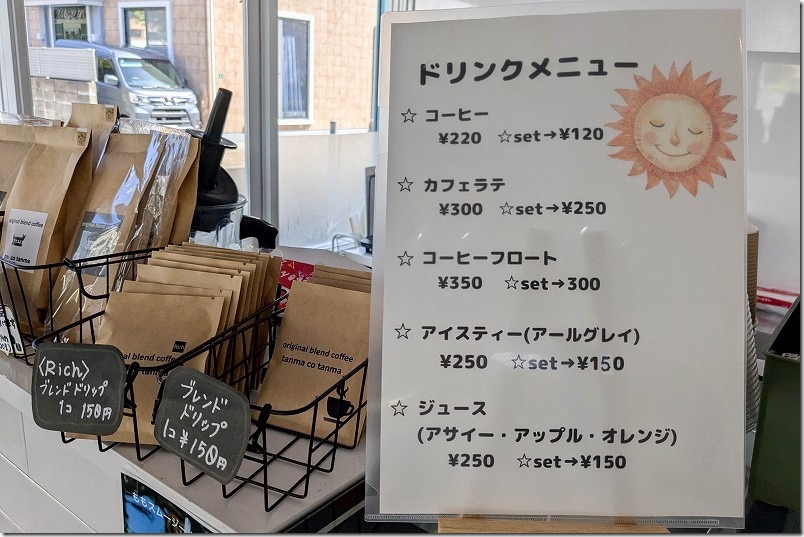 ドリンクメニュー
☆ コーヒー
¥220 ☆set→¥120
☆ カフェラテ
¥300 ☆set→¥250
☆ コーヒーフロート
¥350 ☆set→300
☆ アイスティー(アールグレイ)
¥250 ☆set→¥150
☆ ジュース
(アサイー・アップル・オレンジ)
¥250 ☆set→¥150
original blend coffee
tanma co tanma
original blend coffee
co tanma
Rich
al blend coffee
tanma
〈Rich〉
ブレンドドリップ
1コ 150円
ブレンド
ドリップ
1コ ¥150円
ももスムージ